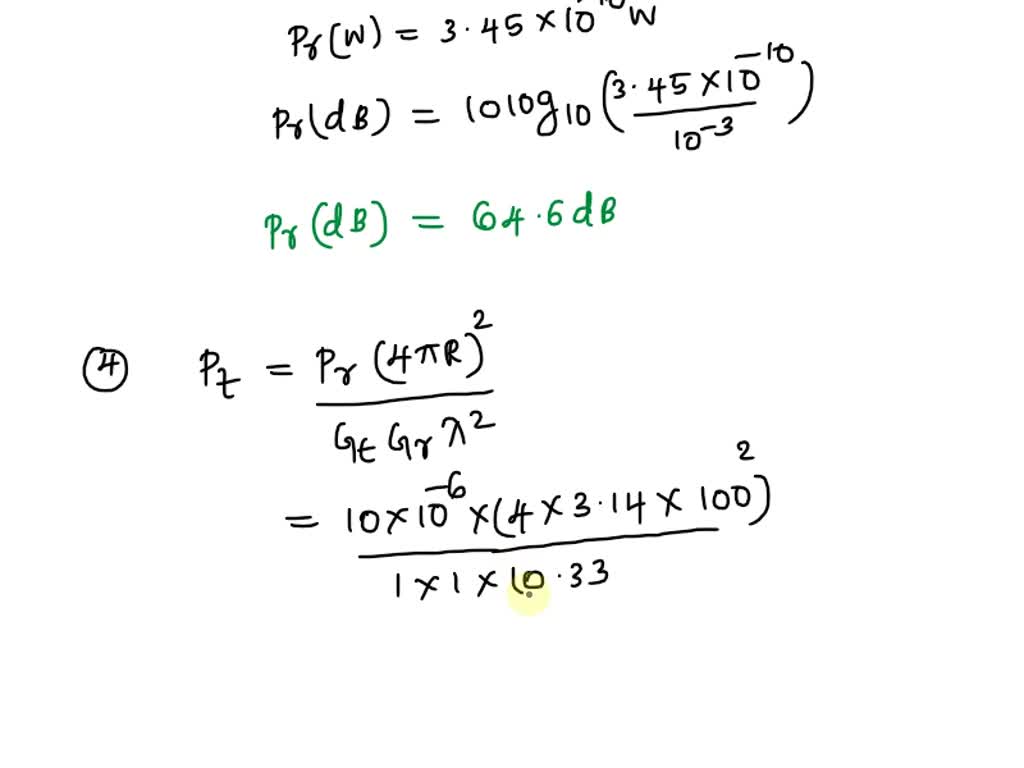 Pr(W) = 3.45 × 10⁻¹⁰ W
Pr(dB) = 10log₁₀ (3.45 × 10⁻¹⁰ / 10⁻³)
Pr(dB) = 64.6dB
④ Pt = Pr (4πR)² / Gt Gr λ²
= 10 × 10⁻⁶ × (4 × 3.14 × 100)² / 1 × 1 × 10.33